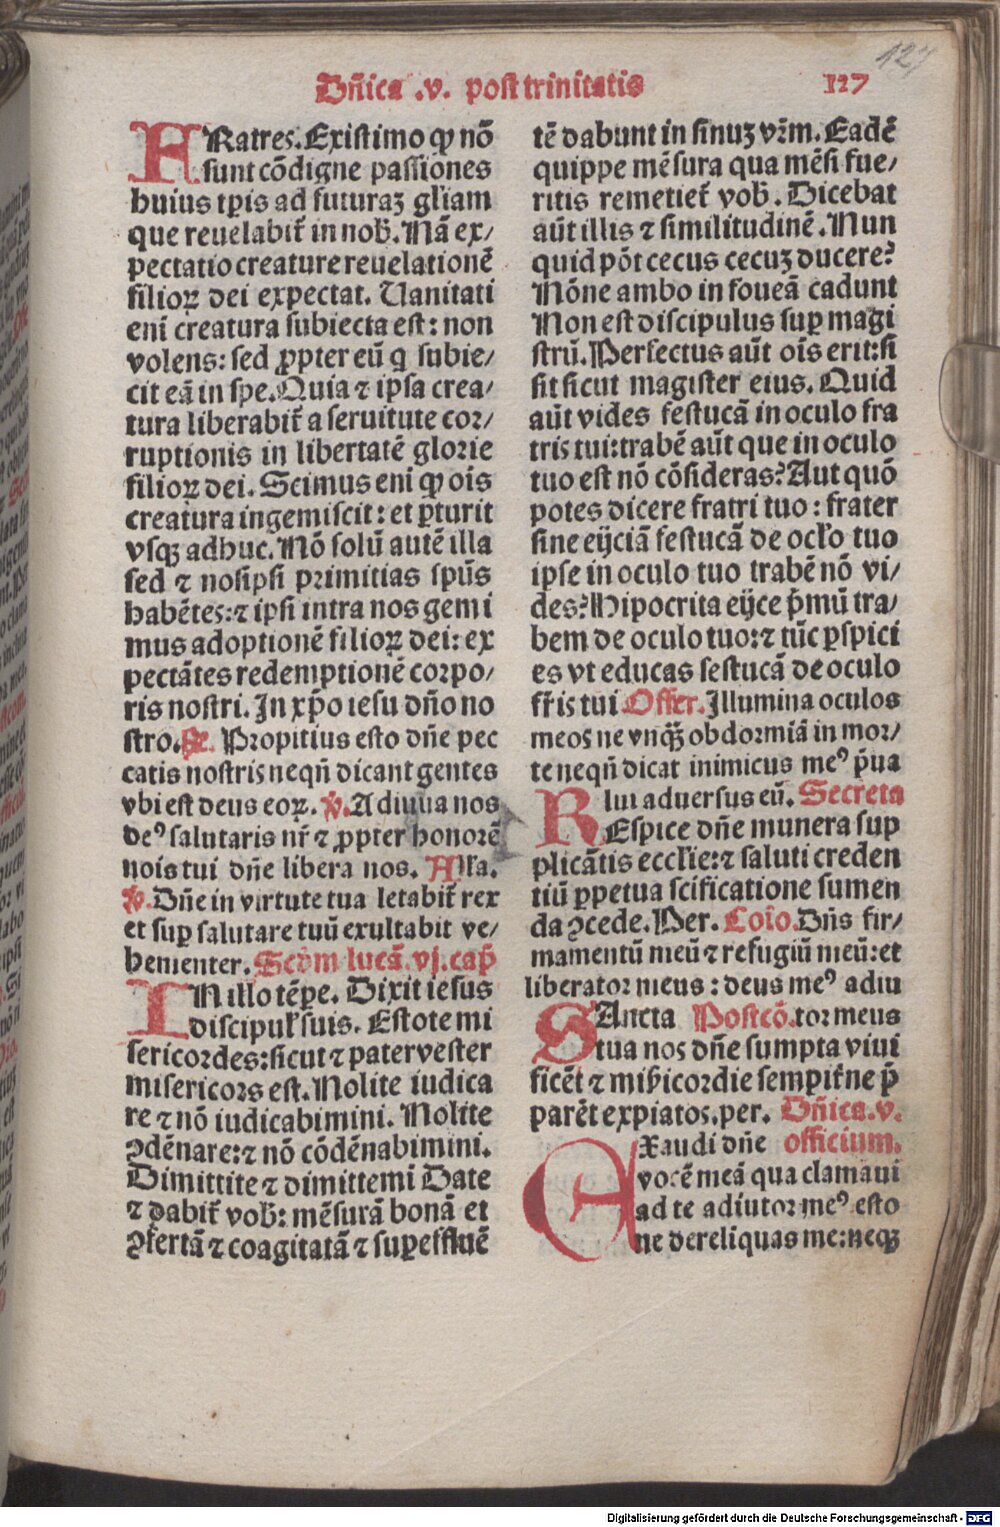 Dñica .v. post trinitatis 127
FRatres. Existimo ꝙ nõ
sunt cõdigne passiones
huius tp̄is ad futuraꝫ gl̄iam
que reuelabit̃ in nob̃. Nã ex/
pectatio creature reuelationẽ
filioꝝ dei expectat. Uanitati
eni creatura subiecta est: non
volens: sed ꝓpter eũ q̇ subie/
cit eã in spe. Quia ⁊ ipsa crea/
tura liberabit̃ a seruitute cor/
ruptionis in libertatẽ glorie
filioꝝ dei. Scimus eni ꝙ ois
creatura ingemiscit: et ꝑturit
vsqꝫ adhuc. Nõ solũ autẽ illa
sed ⁊ nosipsi primitias spũs
habẽtes: ⁊ ipsi intra nos gemi
mus adoptionẽ filioꝝ dei: ex
pectãtes redemptionẽ corpo/
ris nostri. In xp̄o iesu dño no
stro. Gr̃. Propitius esto dñe pec
catis nostris neqñ dicant gentes
vbi est deus eoꝝ. ℣. Adiuua nos
deꝰ salutaris nr̃ ⁊ ꝓpter honorẽ
nois tui dñe libera nos. Alla.
℣. Dñe in virtute tua letabit̃ rex
et suꝑ salutare tuũ exultabit ve/
hementer. Scd̃m lucã. vj. cap̃
IN illo tẽpe. Dixit iesus
discipul̃ suis. Estote mi
sericordes: sicut ⁊ pater vester
misericors est. Nolite iudica
re ⁊ nõ iudicabimini. Nolite
ꝯdẽnare: ⁊ nõ cõdẽnabimini.
Dimittite ⁊ dimittemĩ Date
⁊ dabit̃ vob̃: mẽsurã bonã et
ꝯfertã ⁊ coagitatã ⁊ suꝑeffluẽ
tẽ dabunt in sinuꝫ vr̃m. Eadẽ
quippe mẽsura qua mẽsi fue/
ritis remetiet̃ vob̃. Dicebat
aũt illis ⁊ similitudinẽ. Nun
quid põt cecus cecuꝫ ducere?
Nõne ambo in foueã cadunt
Non est discipulus suꝑ magi
strũ. Perfectus aũt ois erit: si
sit sicut magister eius. Quid
aũt vides festucã in oculo fra
tris tui: trabẽ aũt que in oculo
tuo est nõ cõsideras? Aut quõ
potes dicere fratri tuo: frater
sine eijciã festucã de ocl̃o tuo
ipse in oculo tuo trabẽ nõ vi/
des? Hipocrita eijce p̃mũ tra/
bem de oculo tuo: ⁊ tũc ꝑspici
es vt educas festucã de oculo
fr̃is tui Offer. Illumina oculos
meos ne vnqꝫ̃ obdormiã in mor/
te neqñ dicat inimicus meꝰ p̃ua
lui aduersus eũ. Secreta
REspice dñe munera sup
plicãtis eccl̃ie: ⁊ saluti creden
tiũ ꝑpetua scificatione sumen
da ꝯcede. Per. Coĩo. Dñs fir/
mamentũ meũ ⁊ refugiũ meũ: et
liberator meus: deus meꝰ adiu
SAncta Postcõ. tor meus
tua nos dñe sumpta viui
ficẽt ⁊ mib̃icordie sempit̃ne p̃
parẽt expiatos. per. Dñica. v.
EXaudi dñe officium.
vocẽ meã qua clamaui
ad te adiutor meꝰ esto
ne derelinquas me: neqꝫ
Digitalisierung gefördert durch die Deutsche Forschungsgemeinschaft - DFG